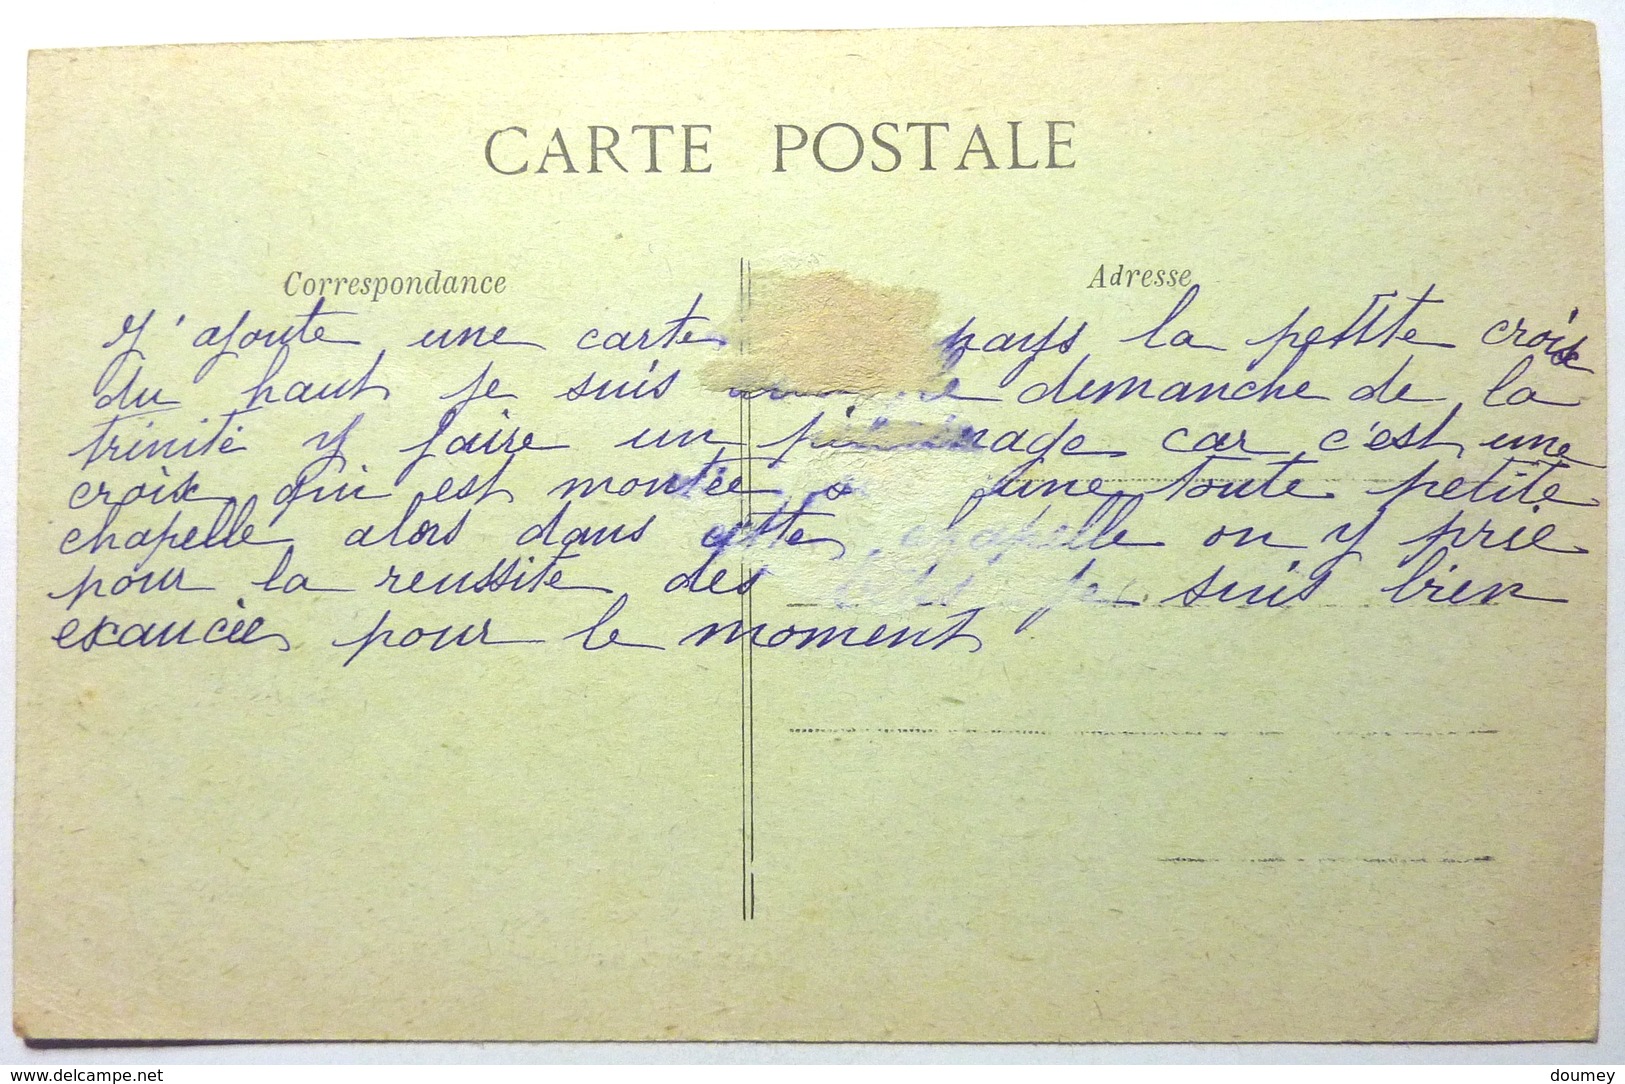 CARTE POSTALE
Correspondance
Adresse
J'ajoute une carte pays la petite croix
du haut je suis demanche de la
trinité y faire un car c'est une
croix qui est montée une toute petite
chapelle alors dans cette chapelle on y prie
pour la reussite des je suis bien
exaucée pour le moment
delcampe.net
doumey